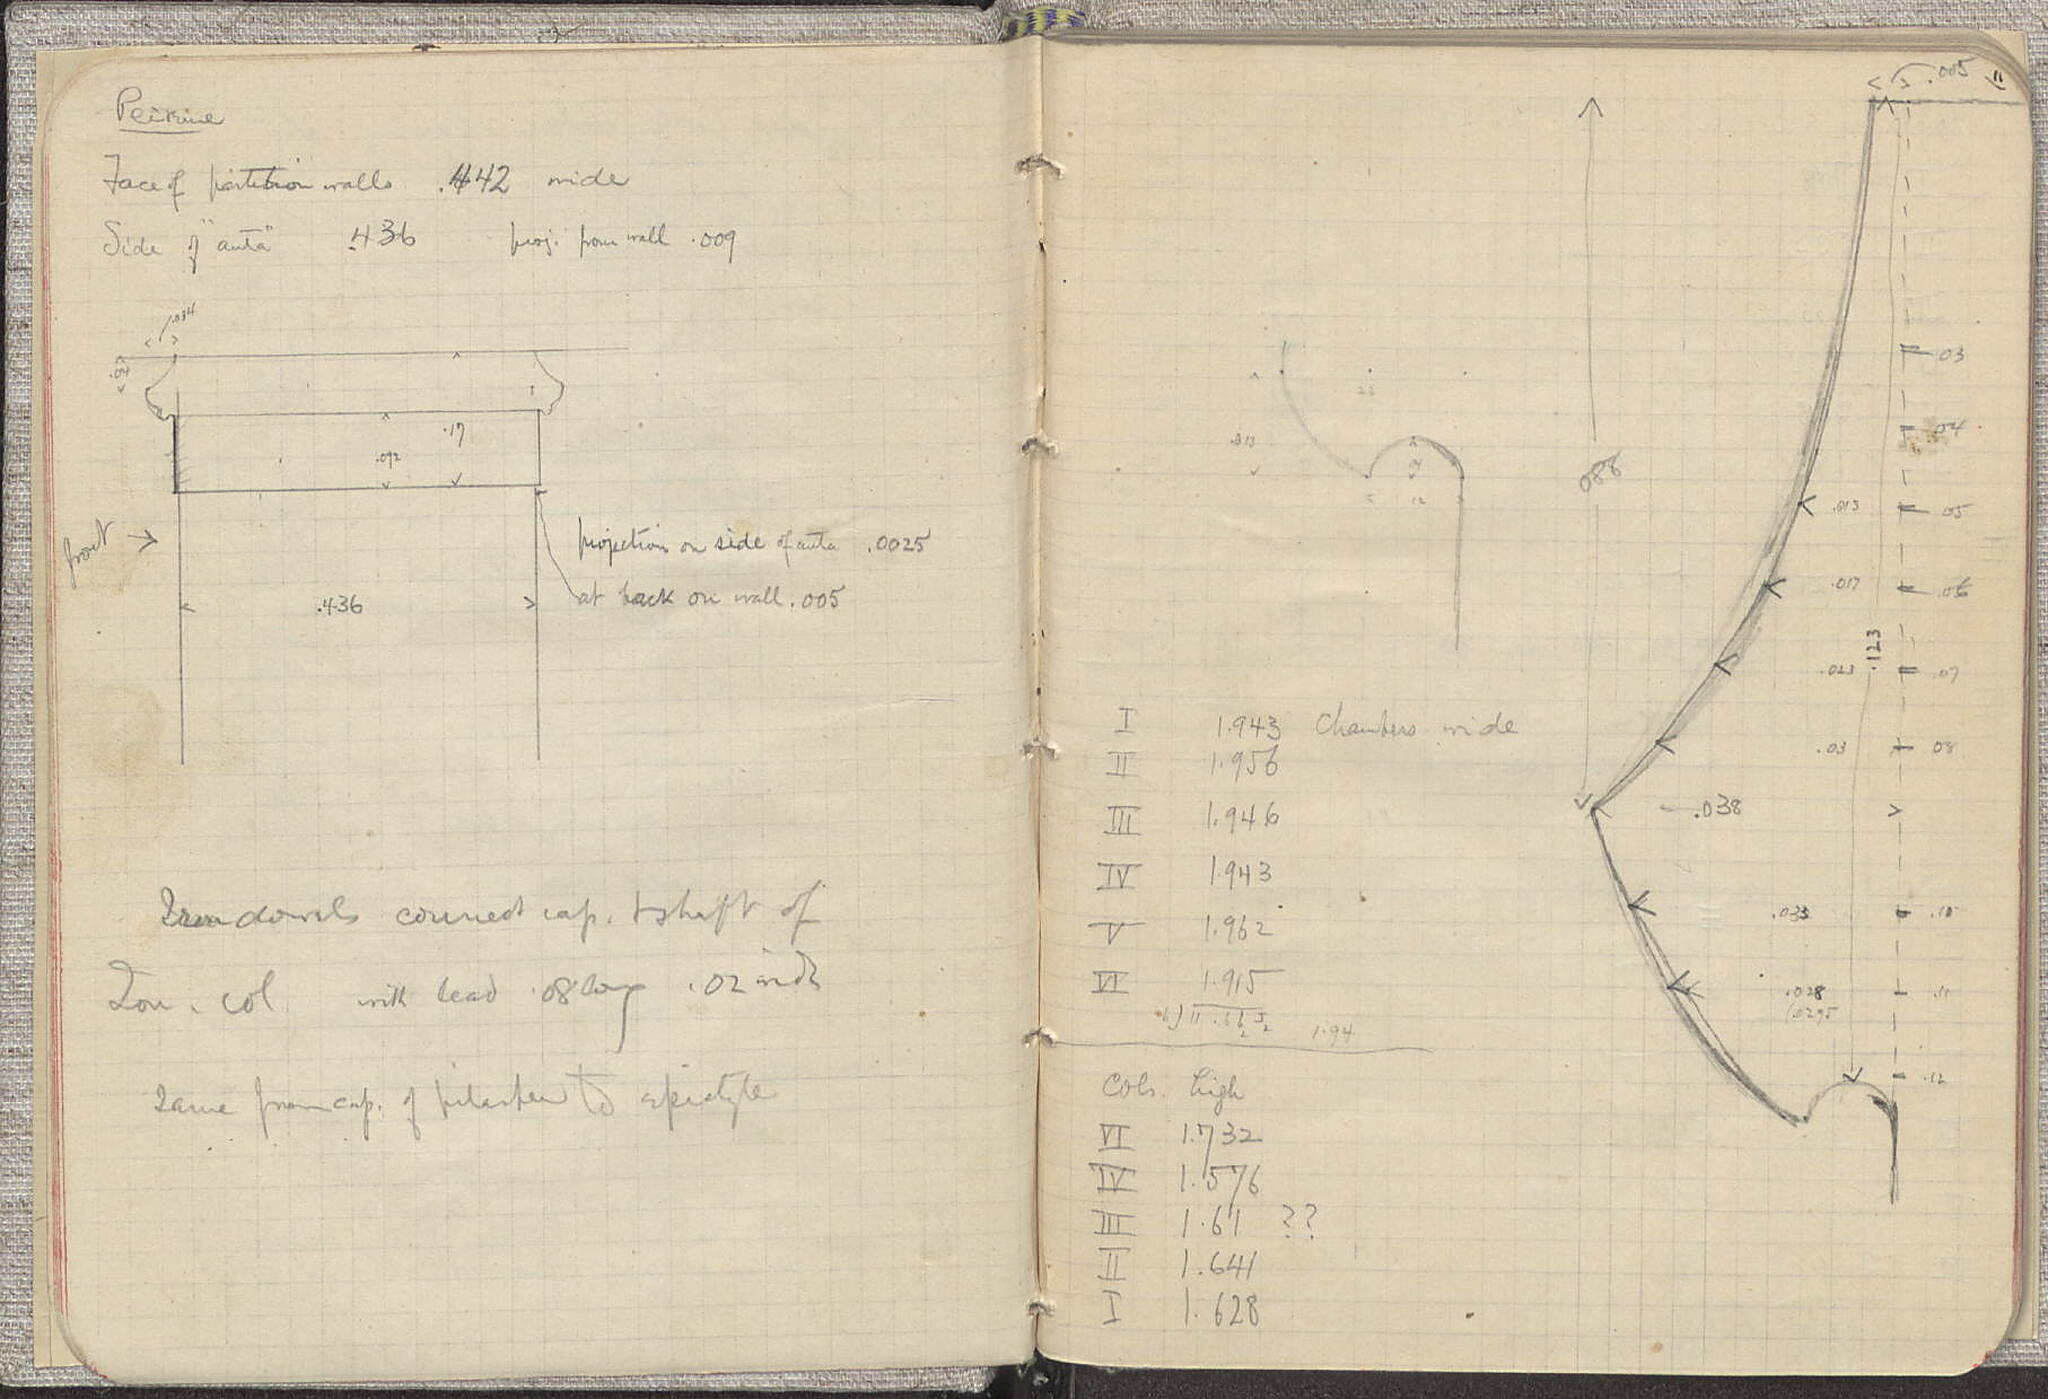 Peirine
Face of partition walls .442 wide
Side of "anta" .436 proj. from wall .009
.034
.04
.17
.092
front
projection on side of anta .0025
at back on wall .005
.436
Iron dowels connect cap. + shaft of
Ion. col. with lead .08 long .02 wide
Same from cap. of pilaster to epistyle
.005
11
03
.04
.013 .05
.017 .06
.023 .07
.03 08
.038
.033 .10
.028 .11
(.0295
.12
.123
.088
23
.013
12
I 1.943 Chambers wide
II 1.956
III 1.946
IV 1.943
V 1.962
VI 1.915
1.94
Cols. high
VI 1.732
IV 1.576
III 1.61 ??
II 1.641
I 1.628